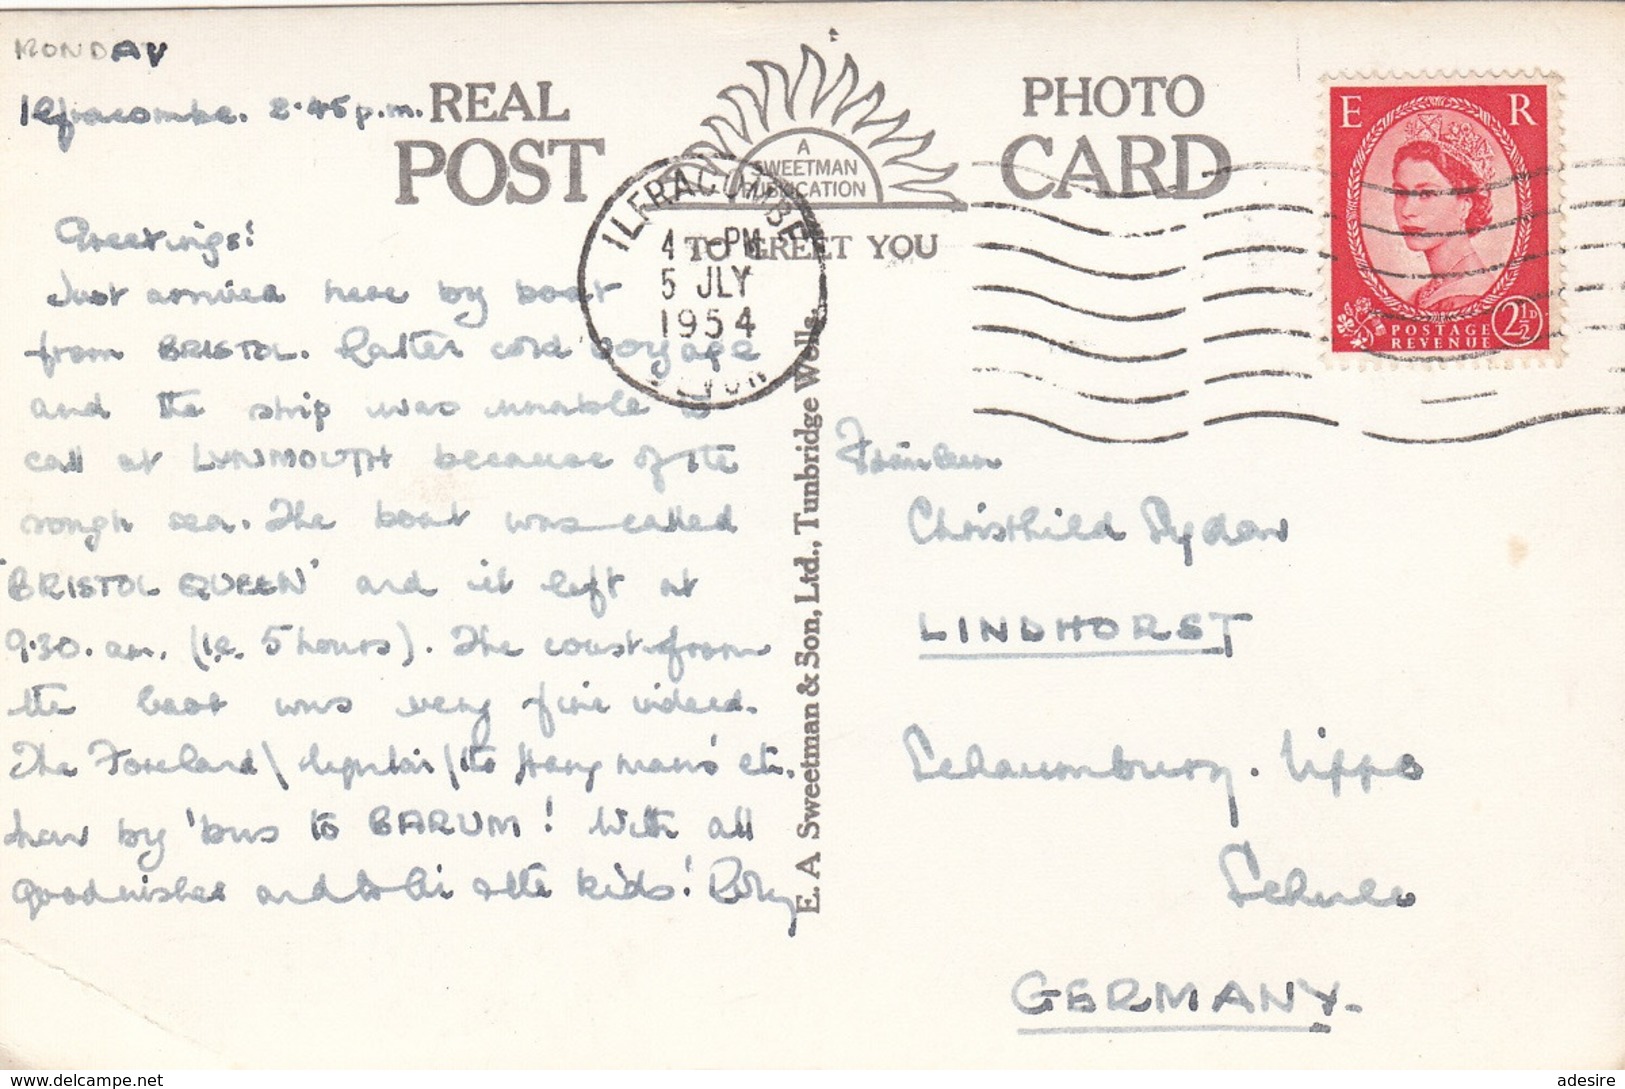 MONDAY
Ilfracombe. 2.45 p.m.
REAL PHOTO
POST CARD
A
SWEETMAN
PUBLICATION
TO GREET YOU
ILFRACOMBE
4 - PM
5 JLY
1954
DEVON
E R
POSTAGE
REVENUE
2½D
Greetings!
Just arrived here by boat
from BRISTOL. Rather cold voyage
and the ship was unable to
call at LYNMOUTH because of the
rough sea. The boat was called
'BRISTOL QUEEN' and it left at
9.30. am. (i.e. 5 hours). The coast from
the boat was very fine indeed.
The Foreland \ / the Hangman's etc.
Now by 'bus to BARUM! With all
good wishes and to all the kids!
E. A. Sweetman & Son, Ltd., Tunbridge Wells.
Fräulein
Christhild
LINDHORST
Schaumburg. Lippe
Schule
GERMANY.
delcampe.net
adesire